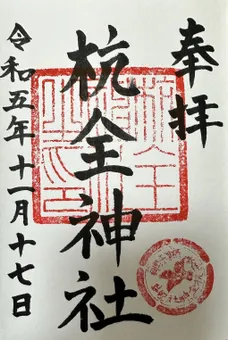 奉拝
杭全神社
令和五年十一月十七日